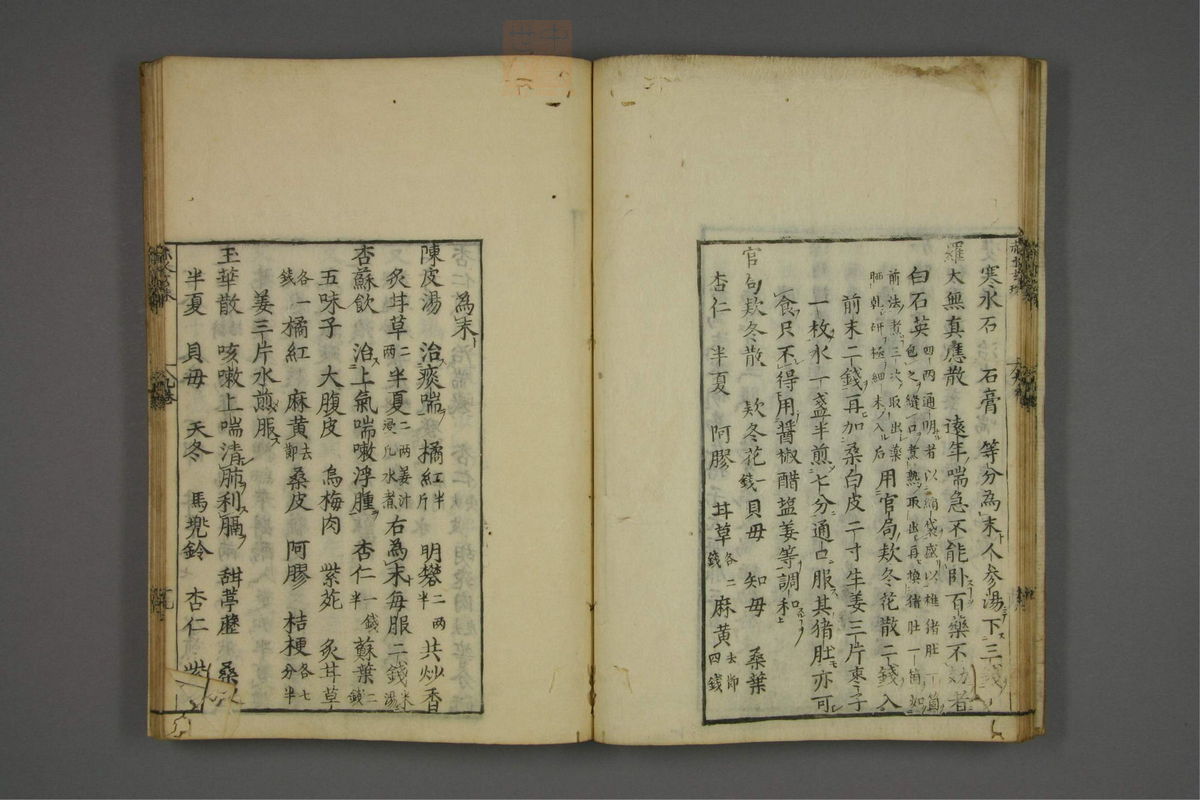 寒水石 石膏 等分為末人參湯下三錢
羅太無真應散 遠年喘急不能卧百藥不効者
白石英四兩通明者以絹袋盛以雄猪肚一箇
包之縫口煮熟取出再換猪肚一箇如
前法煮三次取出藥
晒乾研極細末入后用官局欵冬花散二錢入
前末二錢再加桑白皮二寸生姜三片棗子
一枚水一盞半煎七分通口服其猪肚亦可
食只不得用醤椒醋塩姜等調和
官局欵冬散 欵冬花一錢貝毋 知毋 桑葉
杏仁 半夏 阿膠 甘草各二錢麻黄去節四錢
為末
陳皮湯 治痰喘 橘紅半斤 明礬二兩半共炒香
炙甘草二兩半夏二兩姜汁浸水煮右為末每服二錢米湯
杏蘇飲 治上氣喘嗽浮腫 杏仁一錢半蘇葉二錢
五味子 大腹皮 烏梅肉 紫苑 炙甘草
各一錢橘紅 麻黄去節桑皮 阿膠 桔梗各七分半
姜三片水煎服
玉華散 咳嗽上喘清肺利膈 甜葶藶 桑
半夏 貝毋 天冬 馬兜鈴 杏仁 紫